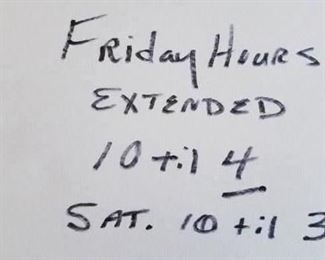 Friday Hours
EXTENDED
10 til 4
SAT. 10 til 3